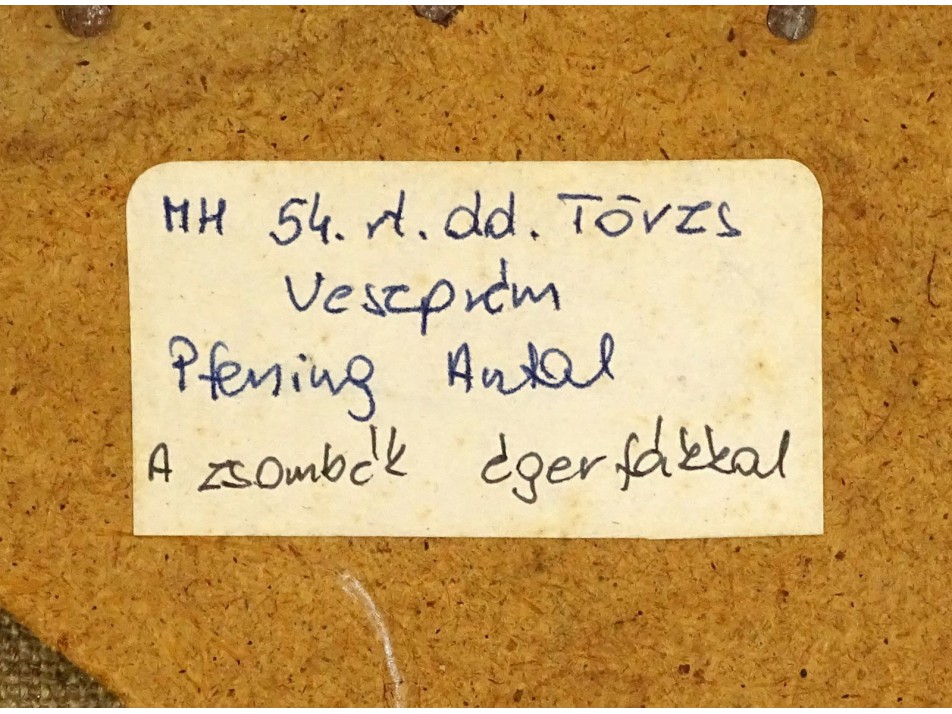 MH 54. rt. dd. Törzs
Veszprém
Pfening Antal
A zsombék égerfákkal